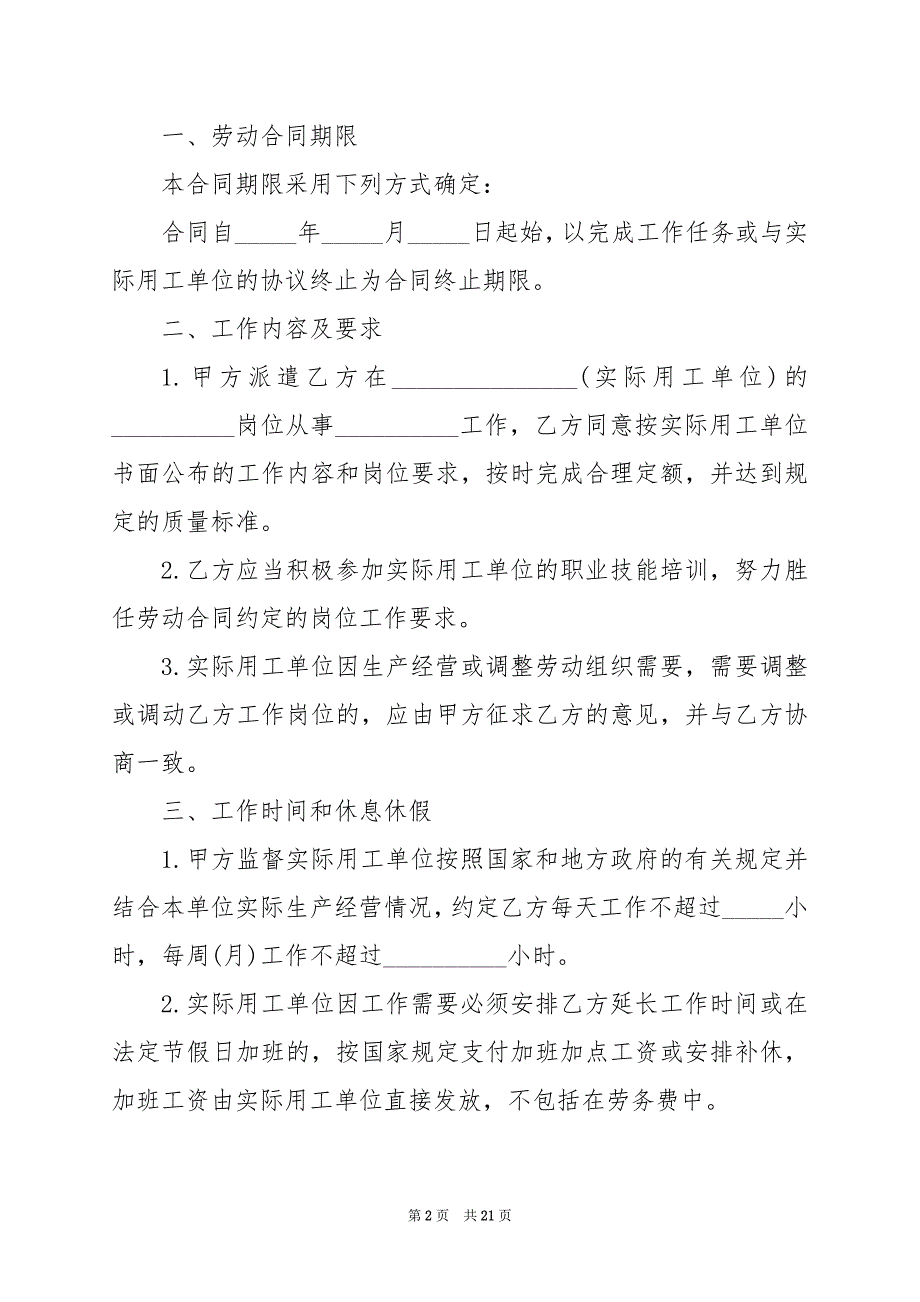 一、劳动合同期限
本合同期限采用下列方式确定：
合同自_____年_____月_____日起始，以完成工作任务或与实
际用工单位的协议终止为合同终止期限。
二、工作内容及要求
1.甲方派遣乙方在_______________(实际用工单位)的
__________岗位从事__________工作，乙方同意按实际用工单位
书面公布的工作内容和岗位要求，按时完成合理定额，并达到规
定的质量标准。
2.乙方应当积极参加实际用工单位的职业技能培训，努力胜
任劳动合同约定的岗位工作要求。
3.实际用工单位因生产经营或调整劳动组织需要，需要调整
或调动乙方工作岗位的，应由甲方征求乙方的意见，并与乙方协
商一致。
三、工作时间和休息休假
1.甲方监督实际用工单位按照国家和地方政府的有关规定并
结合本单位实际生产经营情况，约定乙方每天工作不超过_____小
时，每周(月)工作不超过__________小时。
2.实际用工单位因工作需要必须安排乙方延长工作时间或在
法定节假日加班的，按国家规定支付加班加点工资或安排补休，
加班工资由实际用工单位直接发放，不包括在劳务费中。
第 2 页 共 21 页